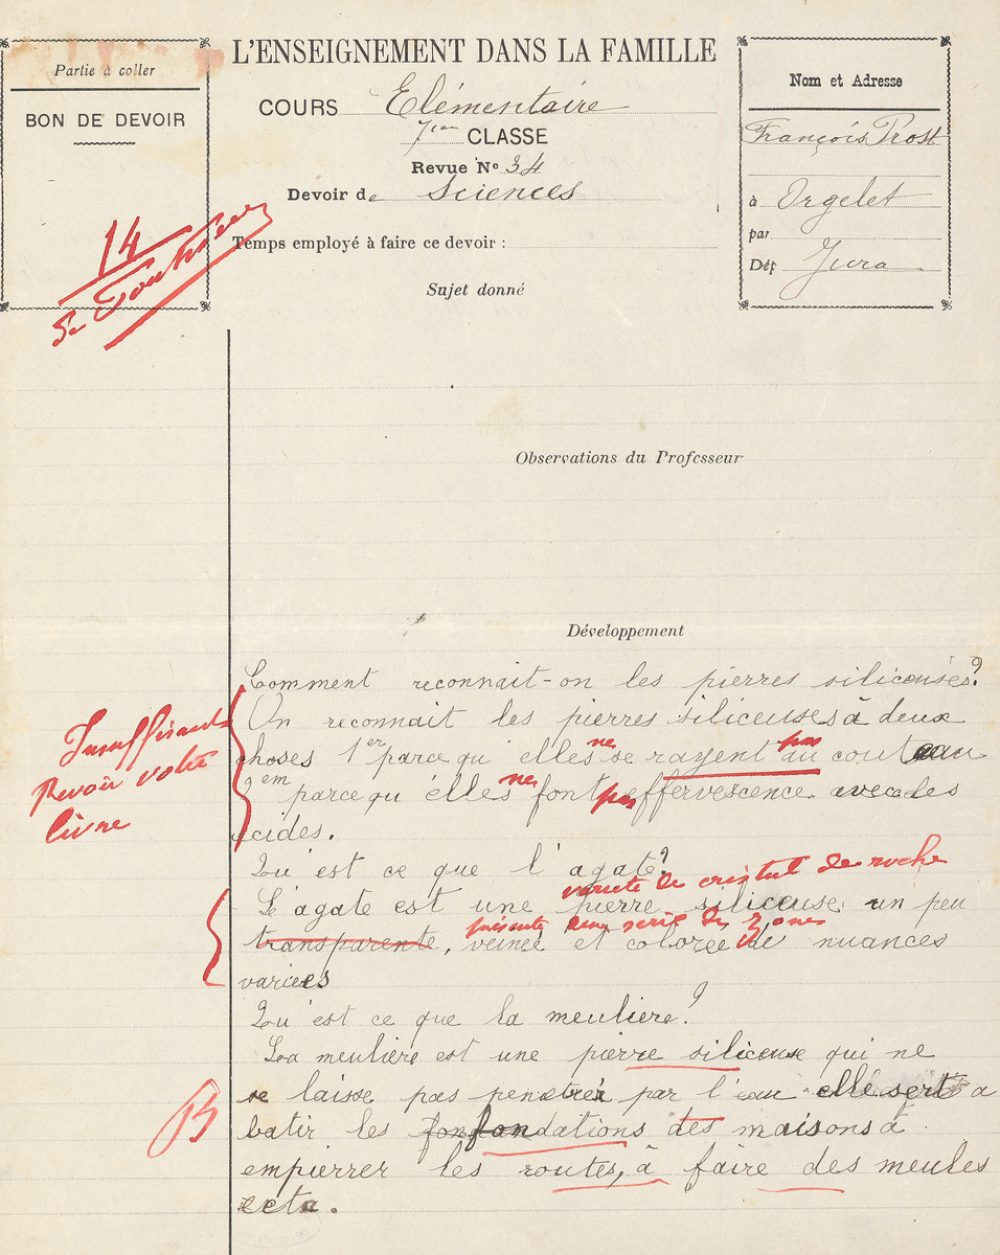 Partie à coller
BON DE DEVOIR
14
L'ENSEIGNEMENT DANS LA FAMILLE
COURS Elémentaire
7ième CLASSE
Revue N° 34
Devoir de Sciences
Temps employé à faire ce devoir :
Sujet donné
Nom et Adresse
François Prost
à Orgelet
par
Dép Jura
Observations du Professeur
Développement
Comment reconnait-on les pierres siliceuses?
On reconnait les pierres siliceuses à deux
choses 1er parce qu elles ne se rayent pas au couteau
2em parcequ élles ne font pas effervescence avec les
acides.
Insuffisant
Revoir votre
livre
Qu'est ce que l'agate?
variété de cristal de roche
L'agate est une pierre siliceuse un peu
présente une serie de zones
transparente, veinée et colorée de nuances
variées
Qu'est ce que la meuliere?
La meulière est une pierre siliceuse qui ne
se laisse pas penetrer par l'eau elle sert a
B
batir les fondations des maisons à
empierrer les routes, à faire des meules
ect.